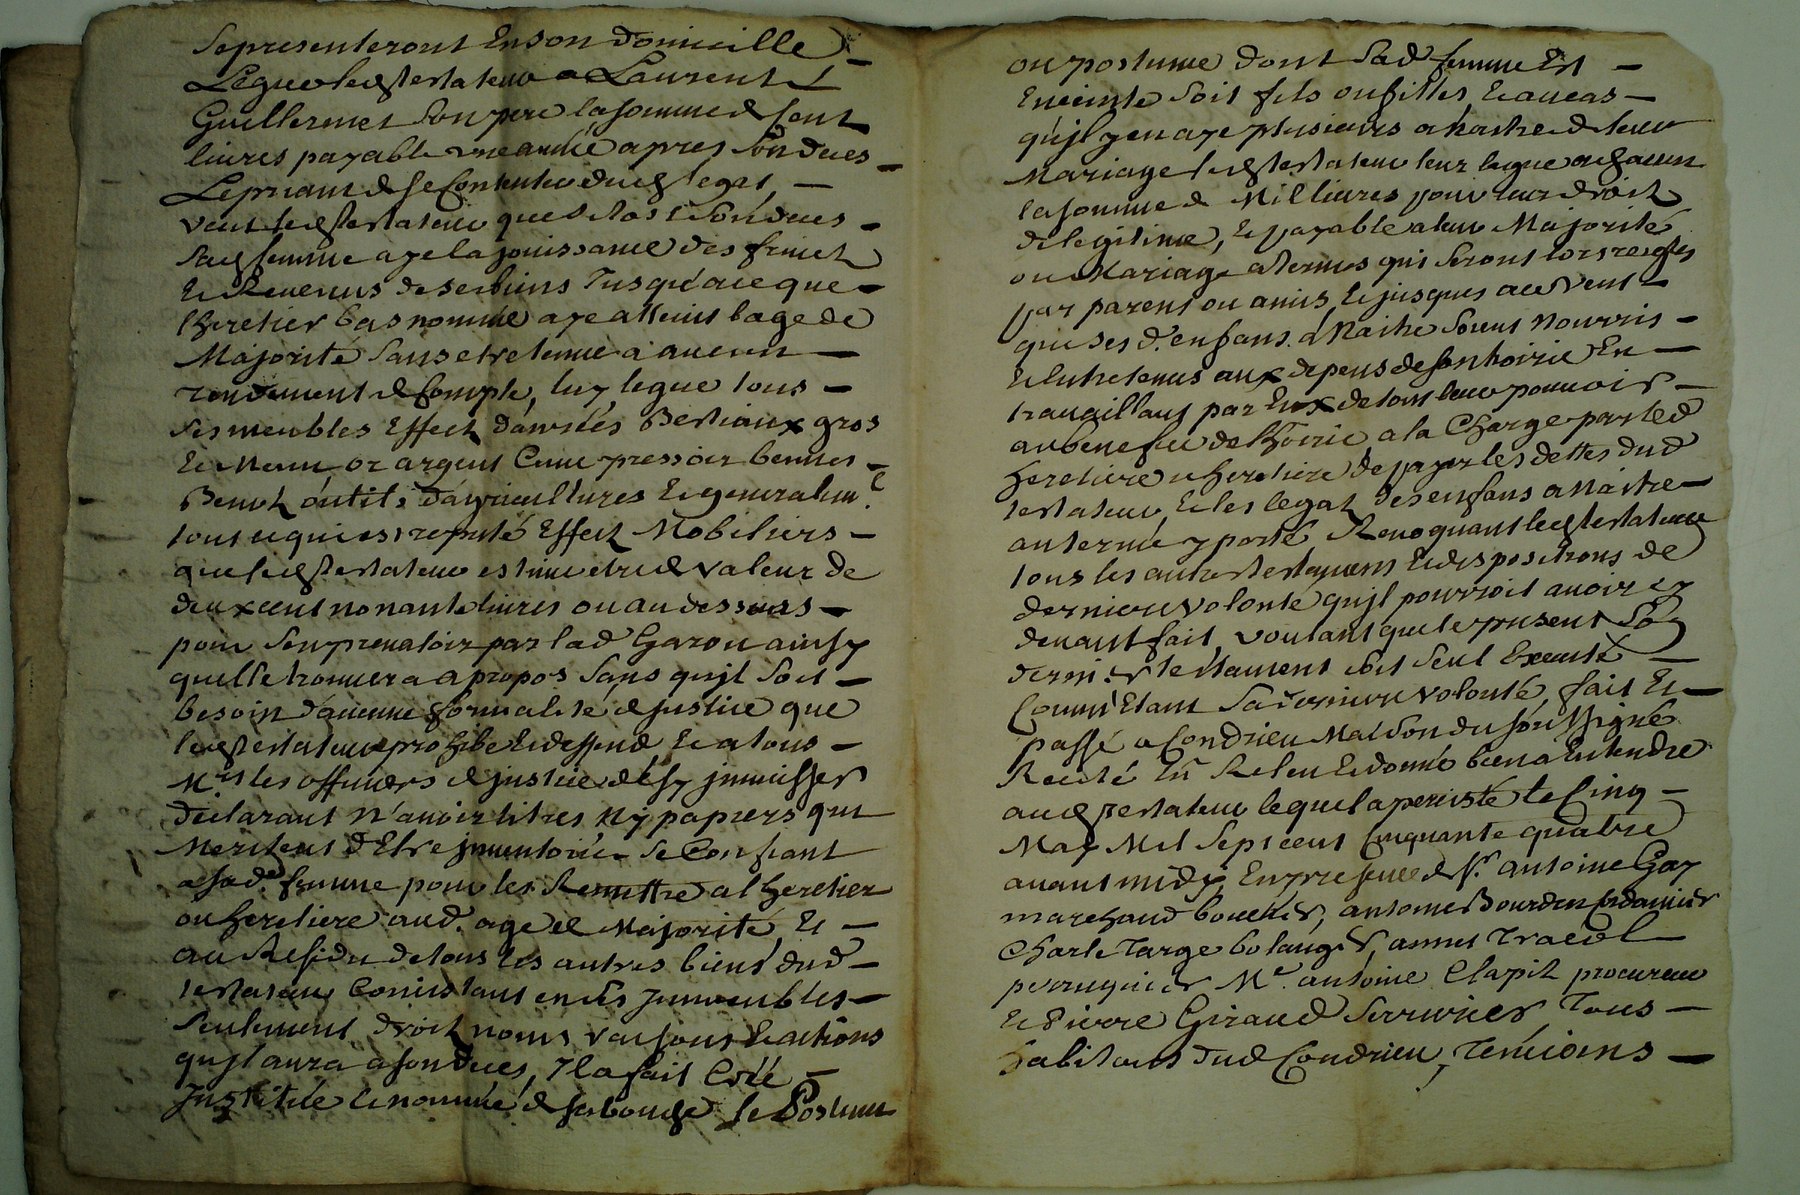 Sepresenteront En son domicille –
Legue led testateur a Laurent
Guillermet Son pere la somme de Cent
livres payable une année apres Son deces –
Le priant de se Contenter dud legat, –
veut led testateur que sitost Son deces –
Sad femme aye la jouissance des fruicts
Et Revenus de ses biens Jusqu'a ce que –
lheretier bas nommé aye atteint lage de
Majorité Sans etre tenue a aucun –
rendement de Compte, luy legue tous –
ses meubles Effects danrées Bestiaux gros
Et Menu or argent Cuve pressoir bennes –
Benots outils d'agricultures Et generalemt
tout ce qui est reputé Effects Mobiliers –
que led testateur estime etre de valeur de
deux cent nonante livres ou au dessous –
pour Sen prevaloir par lad Garon ainsy
quelle trouvera a propos Sans qu'jl soit –
besoin d'aucune formalité de justice que
led testateur prohibe Et deffend Et a tous –
Mrs les officiers de justice de sy jmmisser
Declarant N'avoir titres Ny papiers qui
Meritent d'Etre jnventoriés Se Confiant
a sade femme pour les Remettre a l heretier
ou heretiere aud. age de Majorité, Et –
au Residu de tous les autres biens dud –
testateur Consistant en ses Jmmeubles –
Seulement droits noms raisons Et actions
qu'jl aura a son deces, Jl a fait Créé –
Jnstitüé Et nommé de sa bouche le Postume
ou postume dont Sad femme Est –
Enceinte Soit fils ou filles, Et au cas –
qu'jl y en aye plusieurs a naitre de leur
Mariage led testateur leur legue a chacun
la somme de Mil livres pour leur droit
de legitime, Et payable a leur Majorité
ou Mariage a termes qui Seront lors reglés
par parens ou amis, Et jusques a ce veut –
que ses d. enfans a Naitre Soient Nourris –
Et Entretenus aux depens de son hoirie En –
travaillant par Eux de tout leur pouvoir –
au benefice de lhoirie a la Charge par led
heretier ou heretiere de payer les dettes dud
testateur, Et les legats des enfans a Naitre –
au terme y porté Revoquant led testateur
tous les autres testaments Et dispositions de
derniere volonté qu'jl pourroit avoir cy
devant fait, voulant que le present Soy
dernier testament soit seul Executé –
Comme Etant Sa derniere volonté, fait Et –
passé a Condrieu Maison du Soussigné
Recité Et Releu Et donné bien a Entendre
aud testateur lequel a persisté le Cinq –
May Mil Sept cent Cinquante quatre
avant midy, En presence de sr. antoine Gay
marchand boucher, antoine Bourdin Cordonnier
Charle Targe bolanger, annet
perruquier Me. antoine Clapit procureur
Et Pierre Giraud Serrurier, Tous –
habitants dud Condrieu, Temoins –